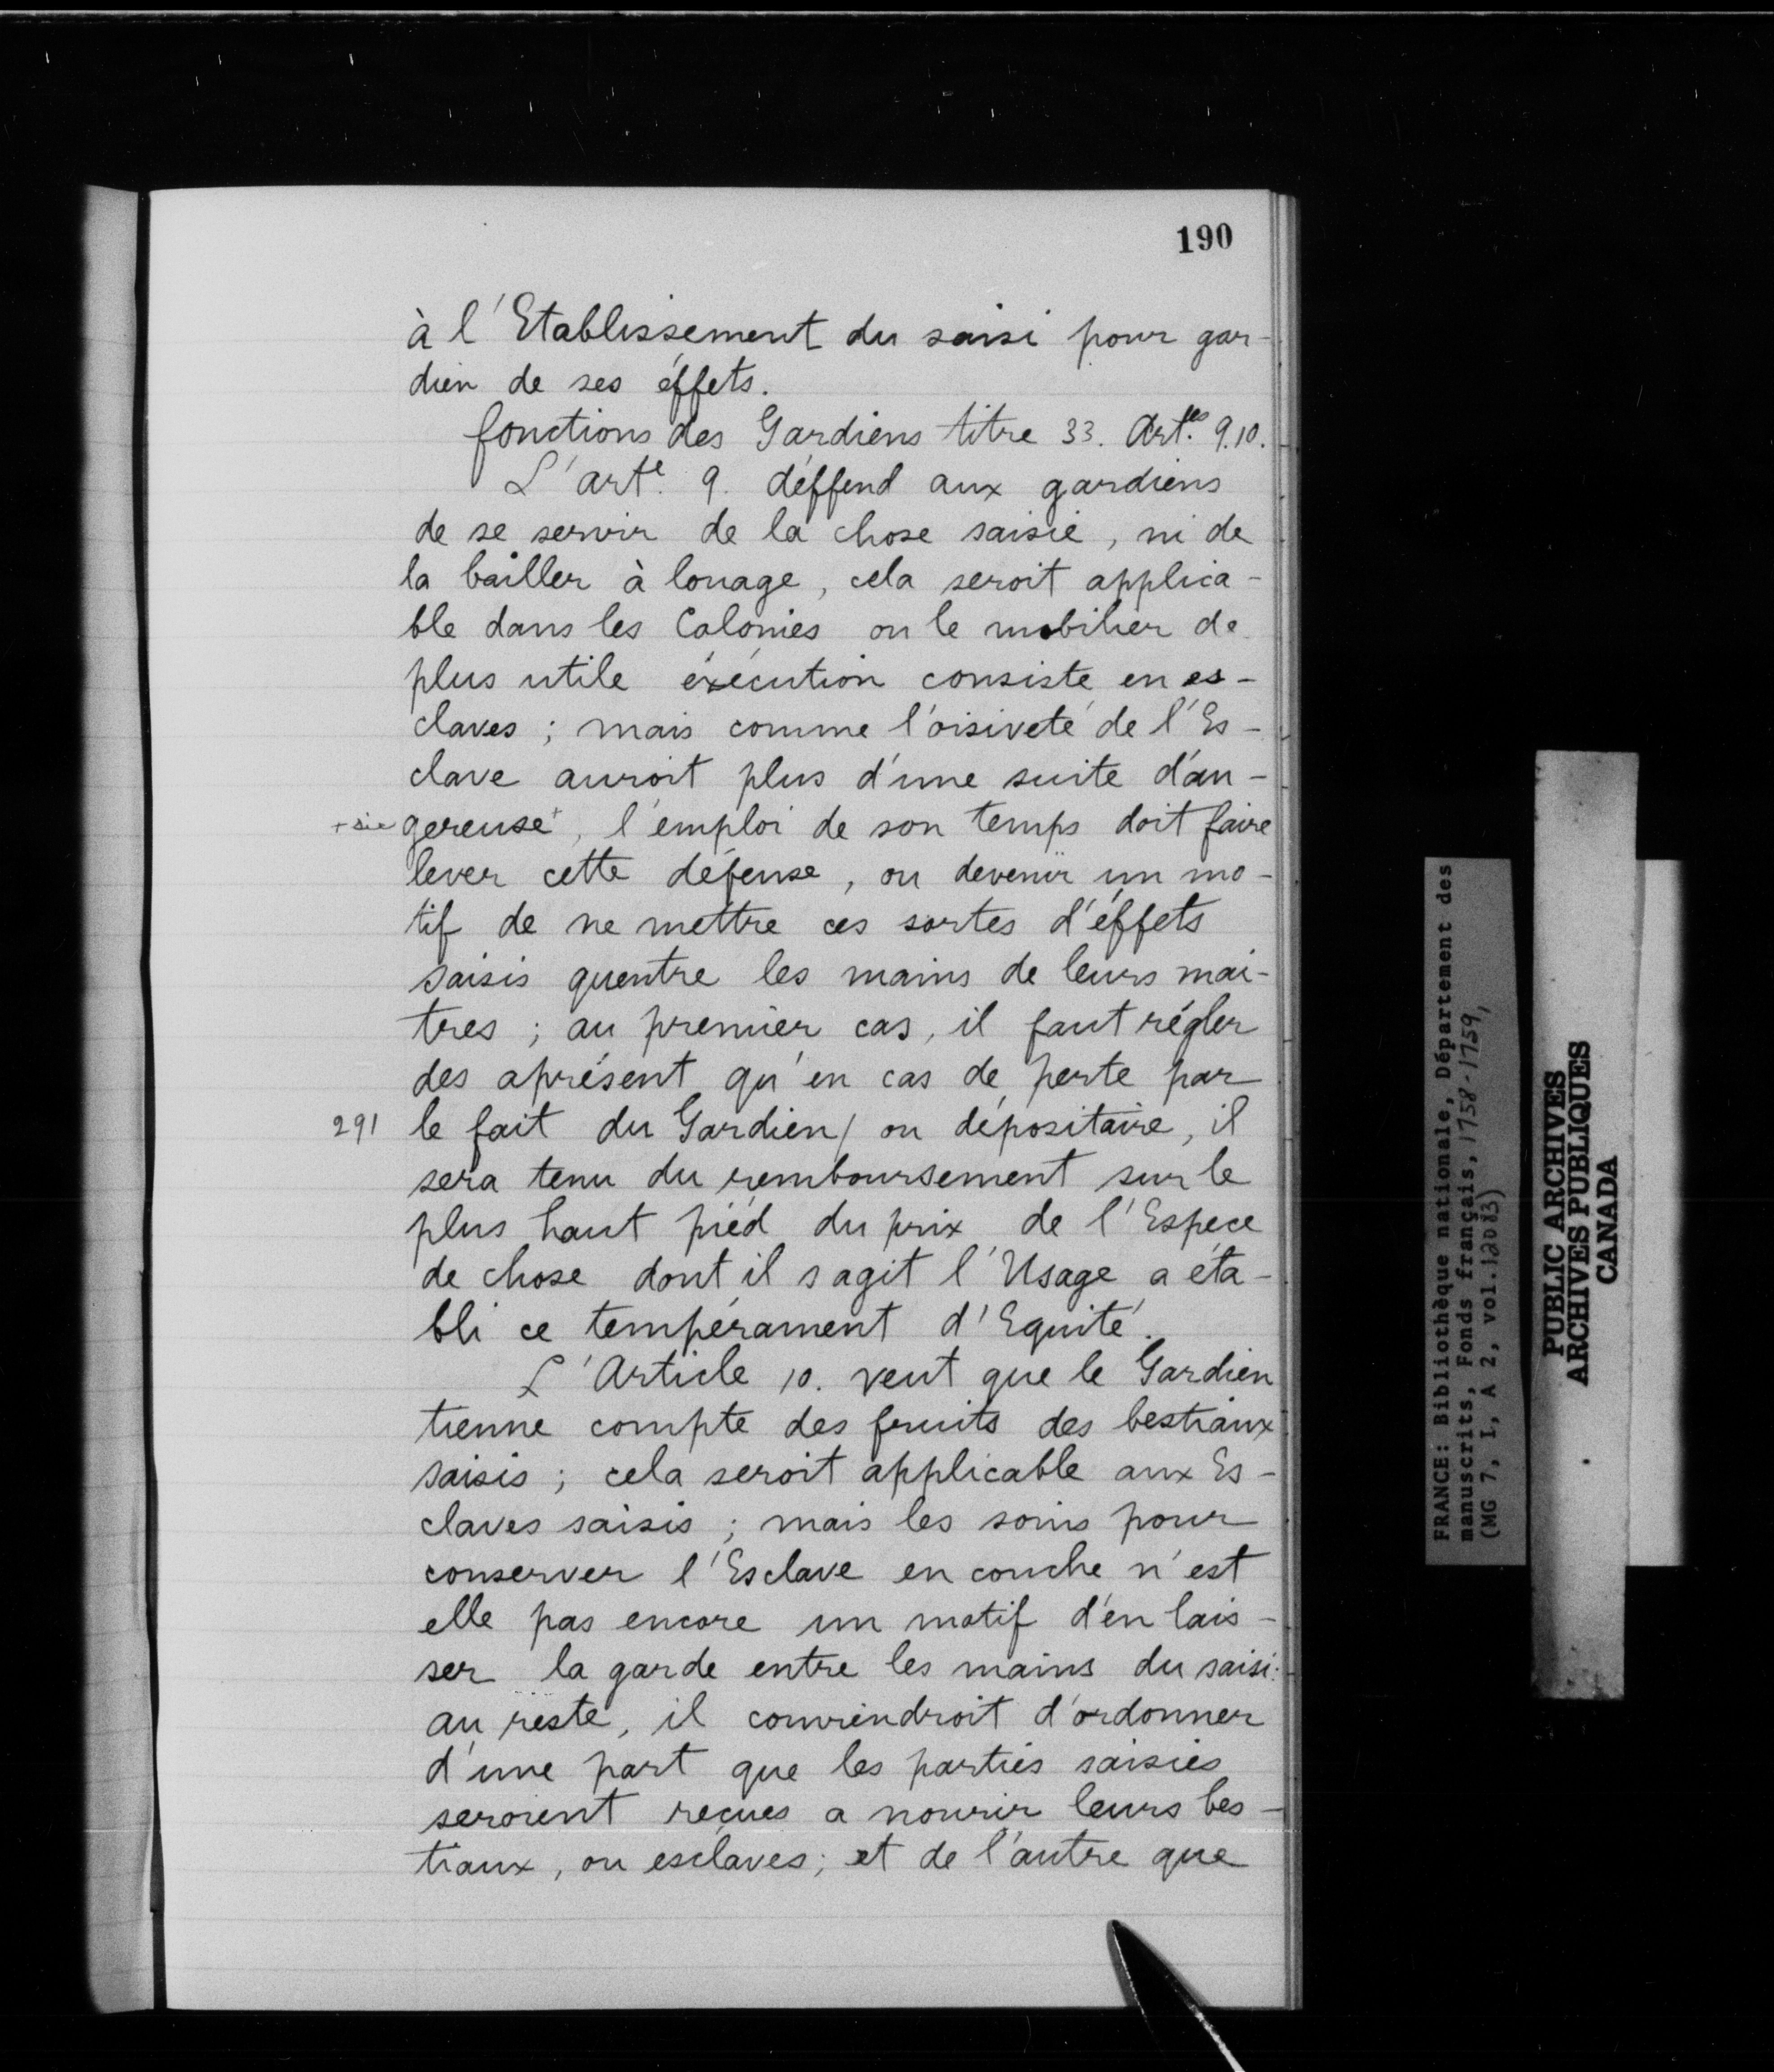 190
à l'Etablissement du saisi pour gar-
dien de ses éffets.
fonctions des Gardiens titre 33. Art.les 9.10.
L'art.e 9. déffend aux gardiens
de se servir de la chose saisie, ni de
la bailler à louage, cela seroit applica-
ble dans les Colonies ou le mobilier de
plus utile éxécution consiste en es-
claves; mais comme l'oisiveté de l'Es-
clave auroit plus d'une suite d'an-
+ sic gereuse+, l'emploi de son temps doit faire
lever cette défense, ou devenir un mo-
tif de ne mettre ces sortes d'éffets
saisis quentre les mains de leurs mai-
tres; au premier cas, il faut régler
des aprésent qu'en cas de perte par
291 le fait du Gardien/ ou dépositaire, il
sera tenu du remboursement sur le
plus haut pied du prix de l'Espece
de chose dont il s'agit l'Usage a éta-
bli ce tempérament d'Equité.
L'Article 10. veut que le Gardien
tienne compte des fruits des bestiaux
saisis; cela seroit applicable aux Es-
claves saisis; mais les soins pour
conserver l'Esclave en couche n'est
elle pas encore un motif d'en lais-
ser la garde entre les mains du saisi:
au reste, il conviendroit d'ordonner
d'une part que les parties saisies
seroient reçues a nourir leurs bes-
tiaux, ou esclaves; et de l'autre que
FRANCE: Bibliothèque nationale, Département des
manuscrits, Fonds français, 1758-1759,
(MG 7, I, A 2, vol. 12083)
PUBLIC ARCHIVES
ARCHIVES PUBLIQUES
CANADA